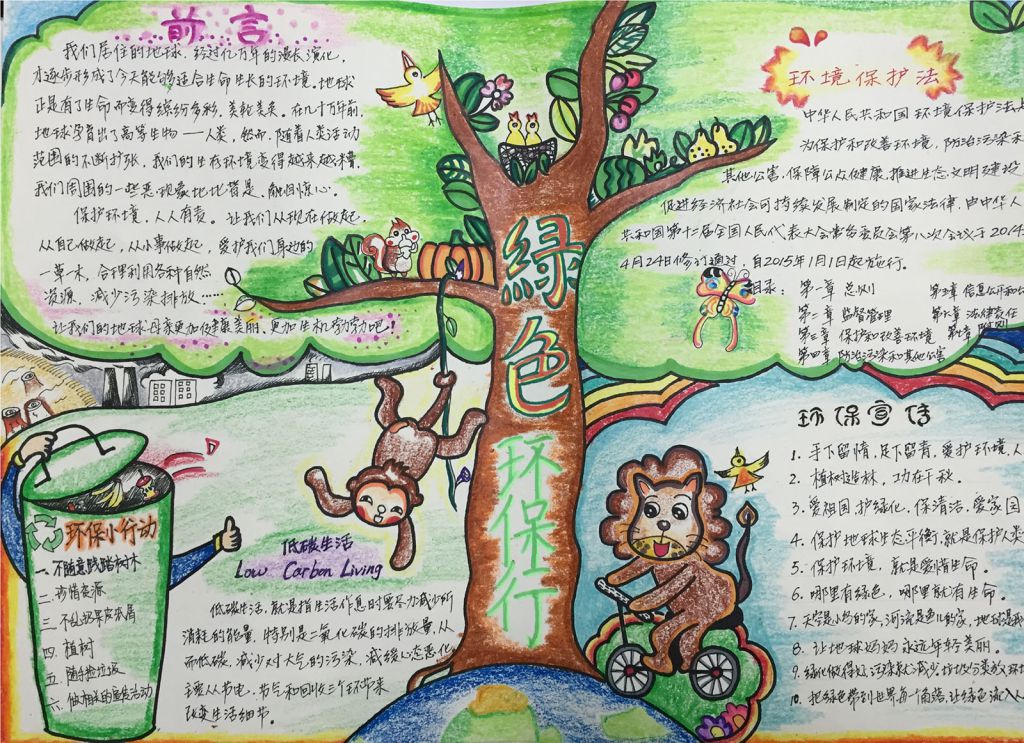 前言
我们居住的地球，经过亿万年的漫长演化，
才逐步形成了今天能够适合生命生长的环境。地球
正是有了生命而变得缤纷多彩，美轮美奂。在几十万年前，
地球孕育出了高等生物——人类，然而，随着人类活动
范围的不断扩张，我们的生存环境变得越来越糟，
我们周围的一些恶现象比比皆是，触目惊心。
保护环境，人人有责。让我们从现在做起，
从自己做起，从小事做起，爱护我们身边的
一草一木，合理利用各种自然
资源、减少污染排放……
让我们的地球母亲更加健康美丽，更加生机勃勃吧！
環境保护法
中华人民共和国环境保护法是
为保护和改善环境，防治污染和
其他公害，保障公众健康，推进生态文明建设
促进经济社会可持续发展制定的国家法律，由中华人
共和国第十二届全国人民代表大会常务委员会第八次会议于2014
4月24日修订通过，自2015年1月1日起施行。
目录：
第一章 总则
第二章 监督管理
第三章 保护和改善环境
第四章 防治污染和其他公害
第五章 信息公开和公
第六章 法律责任
第七章 附则
綠色
环保行
环保小行动
一、不随意践踏树木
二、珍惜资源
三、不乱扔果皮纸屑
四、植树
五、随手捡垃圾
六、做相关的宣传活动
低碳生活
Low Carbon Living
低碳生活，就是指生活作息时要尽力减少所
消耗的能量，特别是二氧化碳的排放量，从
而低碳，减少对大气的污染，减缓生态恶化
主要从节电、节气和回收三个环节来
改变生活细节。
环保宣传
1. 手下留情，足下留青，爱护环境，人
2. 植树造林，功在千秋。
3. 爱祖国，护绿化，保清洁，爱家园
4. 保护地球生态平衡，就是保护人类
5. 保护环境，就是爱惜生命。
6. 哪里有绿色，哪里就有生命。
7. 天空是小鸟的家，河流是鱼的家，地球是我
8. 让地球妈妈永远年轻美丽。
9. 绿化做得好，污染就减少，垃圾分类放，环
10. 把绿色带到世界每一个角落，让绿色流入人